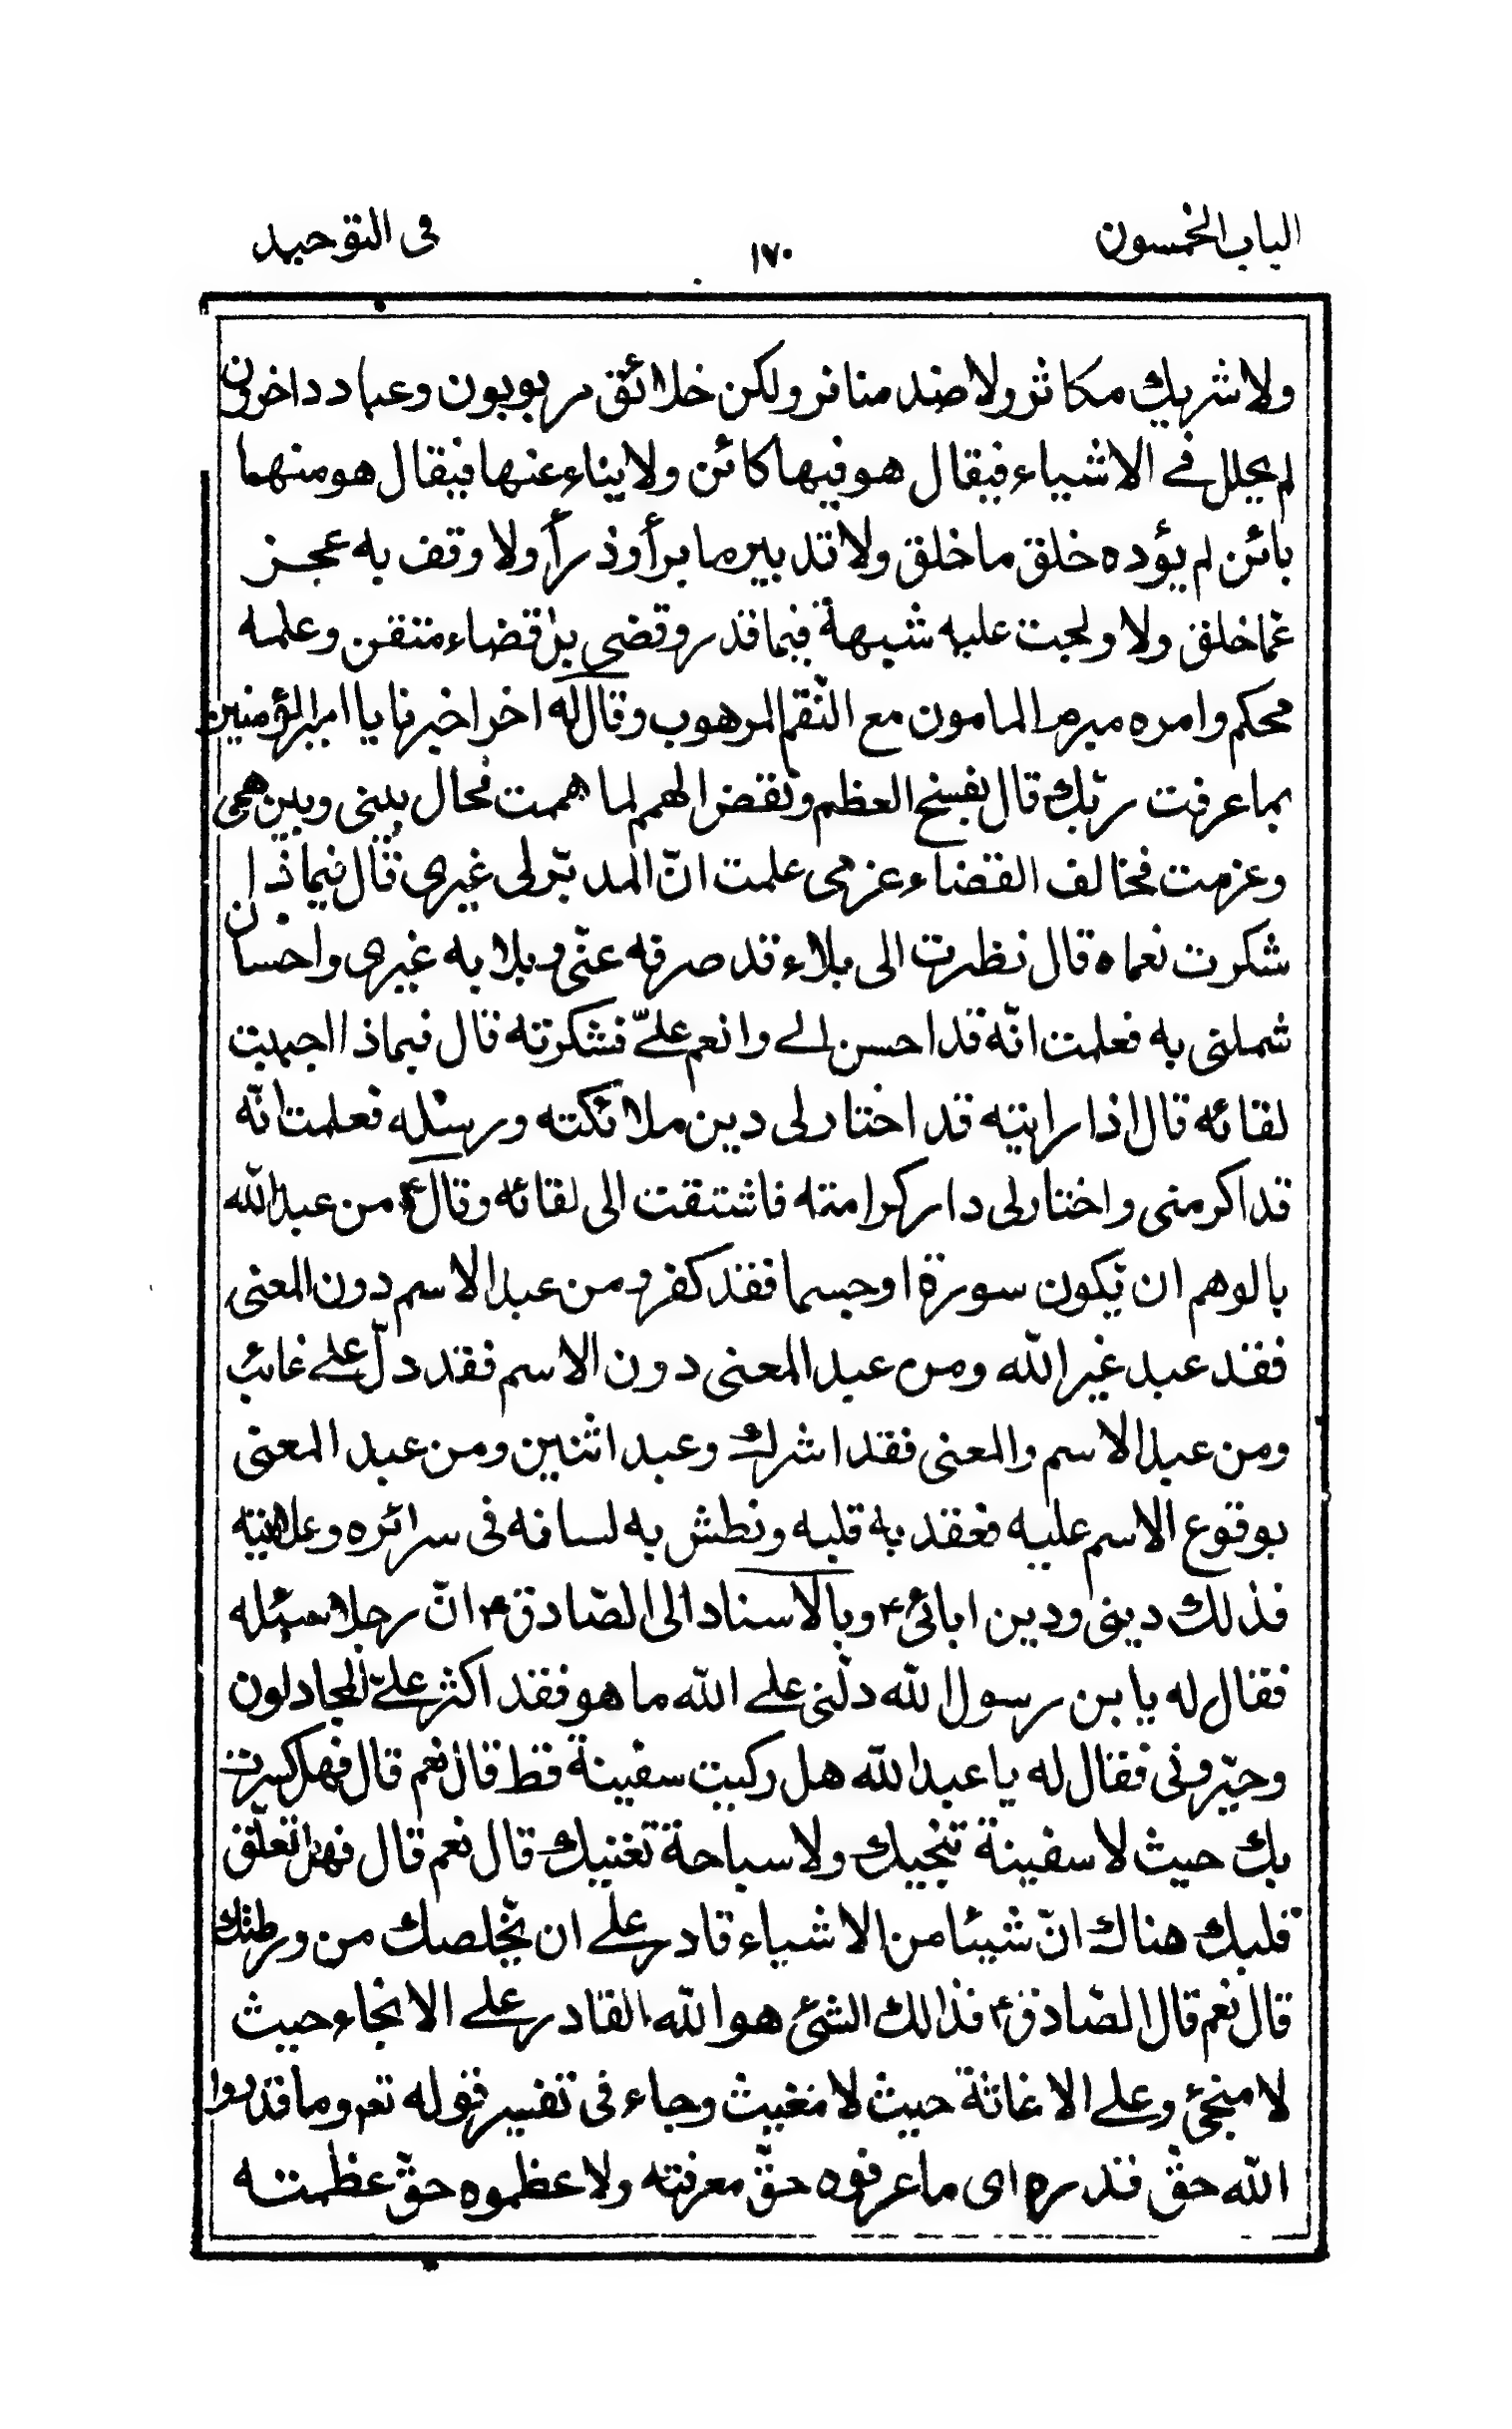 الباب الخمسون
١٧٠
فى التوحيد
ولا شريك مكاثر ولا ضد منافر ولكن خلائق مربوبون وعباد داخرون
لم يحلل فى الاشياء فيقال هو فيها كائن ولا يناء عنها فيقال هو منهما
بائن لم يؤده خلق ما خلق ولا تدبير ما برأ وذرأ ولا وقف به عجز
عما خلق ولا ولجت عليه شبهة فيما قدر وقضى بل قضاء متقن وعلمه
محكم وامره مبرم المامون مع النّقم المرهوب وقال له اخر اخبرنا يا امير المؤمنين
بما عرفت ربّك قال بفسخ العظم ونقض الهمم لما هممت فحال بينى وبين همى
وعزمت فخالف القضاء عزمى علمت انّ المدبّر لى غيرى قال فيما ذا
شكرت نعماه قال نظرت الى بلاء قد صرفه عنّى وبلا به غيرى واحسان
شملنى به فعلمت انّه قد احسن الى وانعم علىّ فشكرته قال فبماذا احببت
لقائه قال اذا رايته قد اختار لى دين ملائكته ورسله فعلمت انّه
قد اكرمنى واختار لى دار كرامته فاشتقت الى لقائه وقال ع من عبد الله
بالوهم ان يكون سورة او جسما فقد كفر ومن عبد الاسم دون المعنى
فقد عبد غير الله ومن عبد المعنى دون الاسم فقد دلّ على غائب
ومن عبد الاسم والمعنى فقد اشرك وعبد اثنين ومن عبد المعنى
بوقوع الاسم عليه فعقد به قلبه ونطش به لسانه فى سرائره وعلانيته
فذلك دينى ودين ابائى ٤ وبالاسناد الى الصّادق ٤ انّ رجلا سئله
فقال له يا بن رسول الله دلّنى على الله ما هو فقد اكثر علىّ المجادلون
وحيّرونى فقال له يا عبد الله هل ركبت سفينة قط قال نعم قال فهل كسرت
بك حيث لا سفينة تنجيك ولا سباحة تغنيك قال نعم قال فهل تعلّق
قلبك هناك انّ شيئا من الاشياء قادر على ان يخلصك من ورطتك
قال نعم قال الصّادق ٤ فذالك الشئ هو الله القادر على الانجاء حيث
لا منجئ وعلى الاغاثة حيث لا مغيث وجاء فى تفسير قوله تعم وما قدروا
الله حقّ قدره اى ما عرفوه حقّ معرفته ولا عظموه حقّ عظمته